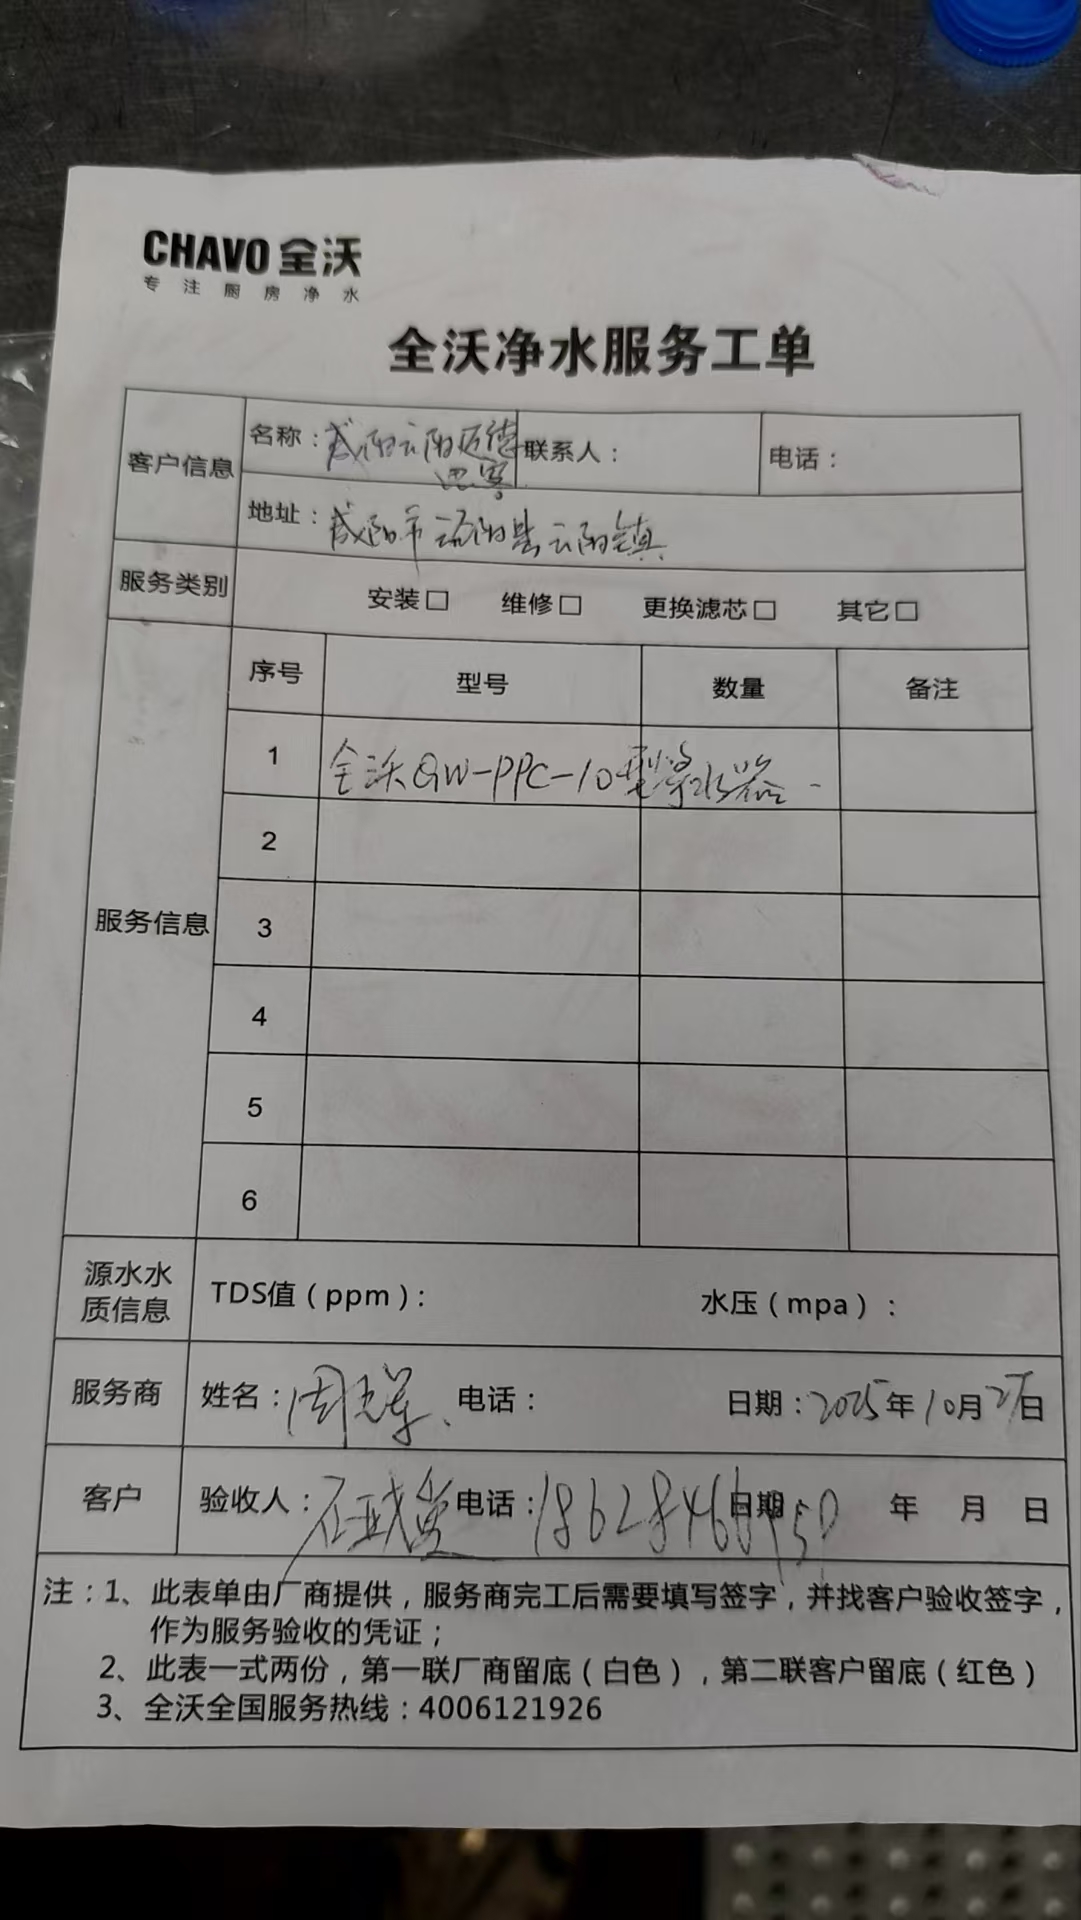 CHAVO 全沃
专注厨房净水
全沃净水服务工单
客户信息
名称：咸阳云阳迈德
思客
联系人：
电话：
地址：咸阳市泾阳县云阳镇
服务类别
安装□ 维修□ 更换滤芯□ 其它□
服务信息
序号 型号 数量 备注
1 全沃QW-PPC-10型净水器
2
3
4
5
6
源水水质信息
TDS值（ppm）： 水压（mpa）：
服务商 姓名：周 军 电话： 日期：2025年10月27日
客户 验收人：石 电话： 日期 年 月 日
注：1、此表单由厂商提供，服务商完工后需要填写签字，并找客户验收签字，
作为服务验收的凭证；
2、此表一式两份，第一联厂商留底（白色），第二联客户留底（红色）
3、全沃全国服务热线：4006121926